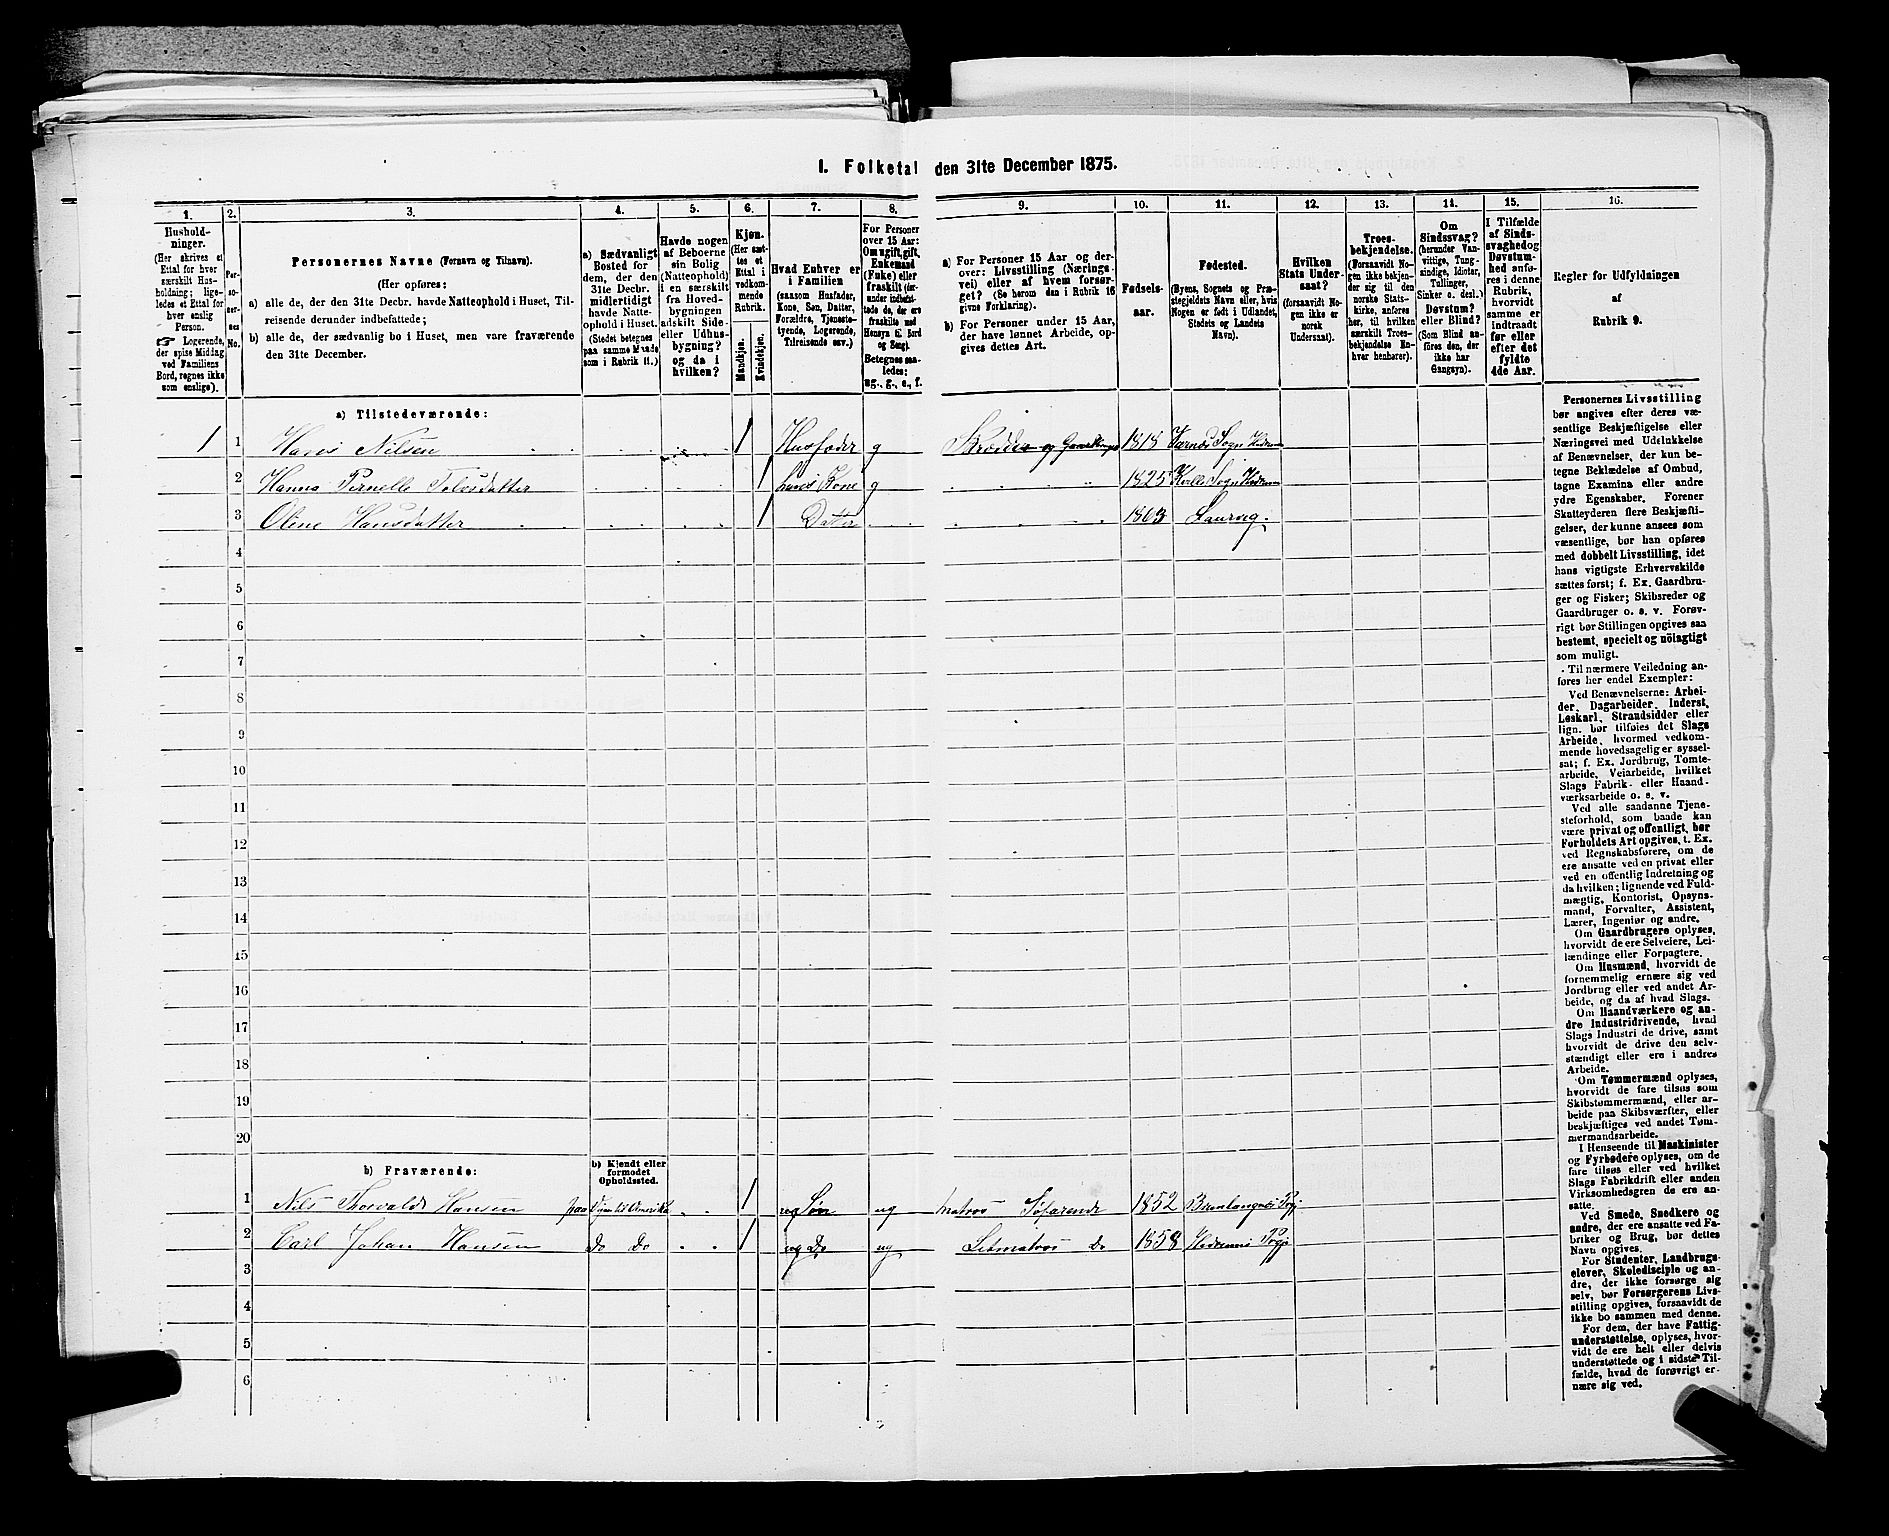 I. Folketal den 31te December 1875.
1. 2. 3. 4. 5. 6. 7. 8. 9. 10. 11. 12. 13. 14. 15. 16.
Hushold-
ninger.
(Her skrives et
Ettal for hver
særskilt Hus-
holdning; lige-
ledes et Ettal for
hver enslig
Person.
☞ Logerende,
der spise Middag
ved Familiens
Bord, regnes ikke
som enslige).
Per-
so-
ner-
nes
No.
Personernes Navne (Fornavn og Tilnavn).
(Her opføres:
a) alle de, der den 31te Decbr. havde Natteophold i Huset, Til-
reisende derunder indbefattede;
b) alle de, der sædvanlig bo i Huset, men vare fraværende
den 31te December.
a) Sædvanligt
Bosted for
dem, der den
31te Decbr.
midlertidigt
havde Natte-
ophold i Huset.
(Stedet betegnes
paa samme Maade
som i Rubrik 11.)
Havde nogen
af Beboerne
sin Bolig
(Natteophold)
i en særskilt
fra Hoved-
bygningen
adskilt Side-
eller Udhus-
bygning?
og da i
hvilken?
Kjøn.
(Her sæt-
tes et
Ettal i
vedkom-
mende
Rubrik.
Mandkjøn.
Kvindekjøn.
Hvad Enhver er
i Familien
(saasom Husfader,
Kone, Søn, Datter,
Forældre, Tjeneste-
tyende, Logerende,
Tilreisende osv.)
For Personer
over 15 Aar:
Om ugift, gift,
Enkemand
(Enke) eller
fraskilt (der-
under indbefat-
tede de, der ere
fraskilte med
Hensyn til Bord
og Seng).
Betegnes saa-
ledes:
ug., g., e., f.
a) For Personer 15 Aar og der-
over: Livsstilling (Nærings-
vei) eller af hvem forsør-
get? (Se herom den i Rubrik 16
givne Forklaring).
b) For Personer under 15 Aar,
der have lønnet Arbeide, op-
gives dettes Art.
Fødsels-
aar.
Fødested.
(Byens, Sognets og Præ-
stegjeldets Navn eller, hvis
Nogen er født i Udlandet,
Stedets og Landets
Navn).
Hvilken
Stats Under-
saat?
(forsaavidt No-
gen ikke er
norsk
Undersaat).
Troes-
bekjendelse.
(Forsaavidt No-
gen ikke bekjen-
der sig til den
norske Stats-
kirke, anføres
her, til hvilken
særskilt Troes-
bekjendelse En-
hver henhører).
Om
Sindssvag?
(herunder Van-
vittige, Tung-
sindige, Idioter,
Tullinger,
Sinker o. desl.)
Døvstum?
eller Blind?
(Som Blind an-
føres den, der
ikke har
Gangsyn).
I Tilfælde
af Sinds-
svaghed og
Døvstum-
hed anfø-
res i denne
Rubrik,
hvorvidt
samme er
Indtraadt
før eller
efter det
fyldte
4de Aar.
Regler for Udfyldningen
af
Rubrik 9.
a) Tilstedeværende:
1 1 Hans Nilsen 1 Husfader g Skrædder og 1818 Sogn
2 Hanna Pernelle 1 hans Kone g 1825 Sogn
3 Oline Hansdatter 1 Datter 1863 Laurvig.
4
5
6
7
8
9
10
11
12
13
14
15
16
17
18
19
20
b) Fraværende:
b) Kjendt eller
formodet
Opholdssted.
1 Nils Thorvald Hansen 1 ug Søn ug Matros Søfarende 1852 Brunlangnes Pgj
2 Carl Johan Hansen Do Do 1 ug Do ug Letmatros Do 1858 Pgj
3
4
5
6
Personernes Livsstilling
bør angives efter deres væ-
sentlige Beskjæftigelse eller
Næringsvei med Udelukkelse
af Benævnelser, der kun be-
tegne Beklædelse af Ombud,
tagne Examina eller andre
ydre Egenskaber. Forener
Skatteyderen flere Beskjæfti-
gelser, der kunne ansees som
væsentlige, bør han opføres
med dobbelt Livsstilling, idet
hans vigtigste Erhvervskilde
sættes først; f. Ex. Gaardbru-
ger og Fisker; Skibsreder og
Gaardbruger o. s. v. Forøv-
rigt bør Stillingen opgives saa
bestemt, specielt og nöiagtigt
som muligt.
Til nærmere Veiledning an-
føres her endel Exempler:
Ved Benævnelserne: Arbei-
der, Dagarbeider, Inderst,
Løskarl, Strandsidder eller
lign. bør tilføies det Slags
Arbeide, hvormed vedkom-
mende hovedsagelig er syssel-
sat; f. Ex. Jordbrug, Tømte-
arbeide, Veiarbeide, hvilket
Slags Fabrik- eller Haand-
værksarbeide o. s. v.
Ved alle saadanne Tjene-
steforhold, som baade kan
være privat og offentligt, bør
Forholdets Art opgives, t. Ex.
ved Regnskabsførere, om de
ere ansatte ved en privat eller
ved en offentlig Indretning og
da hvilken; lignende ved Fuld-
mægtig, Kontorist, Opsyns-
mand, Forvalter, Assistent,
Lærer, Ingeniør og andre.
Om Gaardbrugere oplyses,
hvorvidt de ere Selveiere, Lei-
lændinge eller Forpagtere.
Om Husmænd, hvorvidt de
fornemmelig ernære sig ved
Jordbrug eller ved andet Ar-
beide, og da af hvad Slags.
Om Haandværkere og an-
dre Industridrivende, hvad
Slags Industri de drive, samt
hvorvidt de drive den selv-
stændigt eller ere i andres
Arbeide.
Om Tømmermænd oplyses,
hvorvidt de fare tilsøs som
Skibstømmermænd, eller ar-
beide paa Skibsværfter, eller
beskjæftiges ved andet Tøm-
mermandsarbeide.
I Henseende til Maskinister
og Fyrbødere oplyses, om de
fare tilsøs eller ved hvilket
Slags Fabrikdrift eller anden
Virksomhedsgren de ere an-
satte.
Ved Smede, Snedkere og
andre, der ere ansatte ved Fa-
briker og Brug, bør dettes
Navn opgives.
For Studenter, Landbrugs-
elever, Skoledisciple og an-
dre, der ikke forsørge sig
selv, bør Forsørgerens Livs-
stilling opgives, forsaavidt de
ikke bo sammen med denne.
For dem, der have Fattig-
understøttelse, oplyses, hvor-
vidt de ere helt eller delvis
understøttede og i sidste Til-
fælde, hvad de forøvrigt er-
nære sig ved.